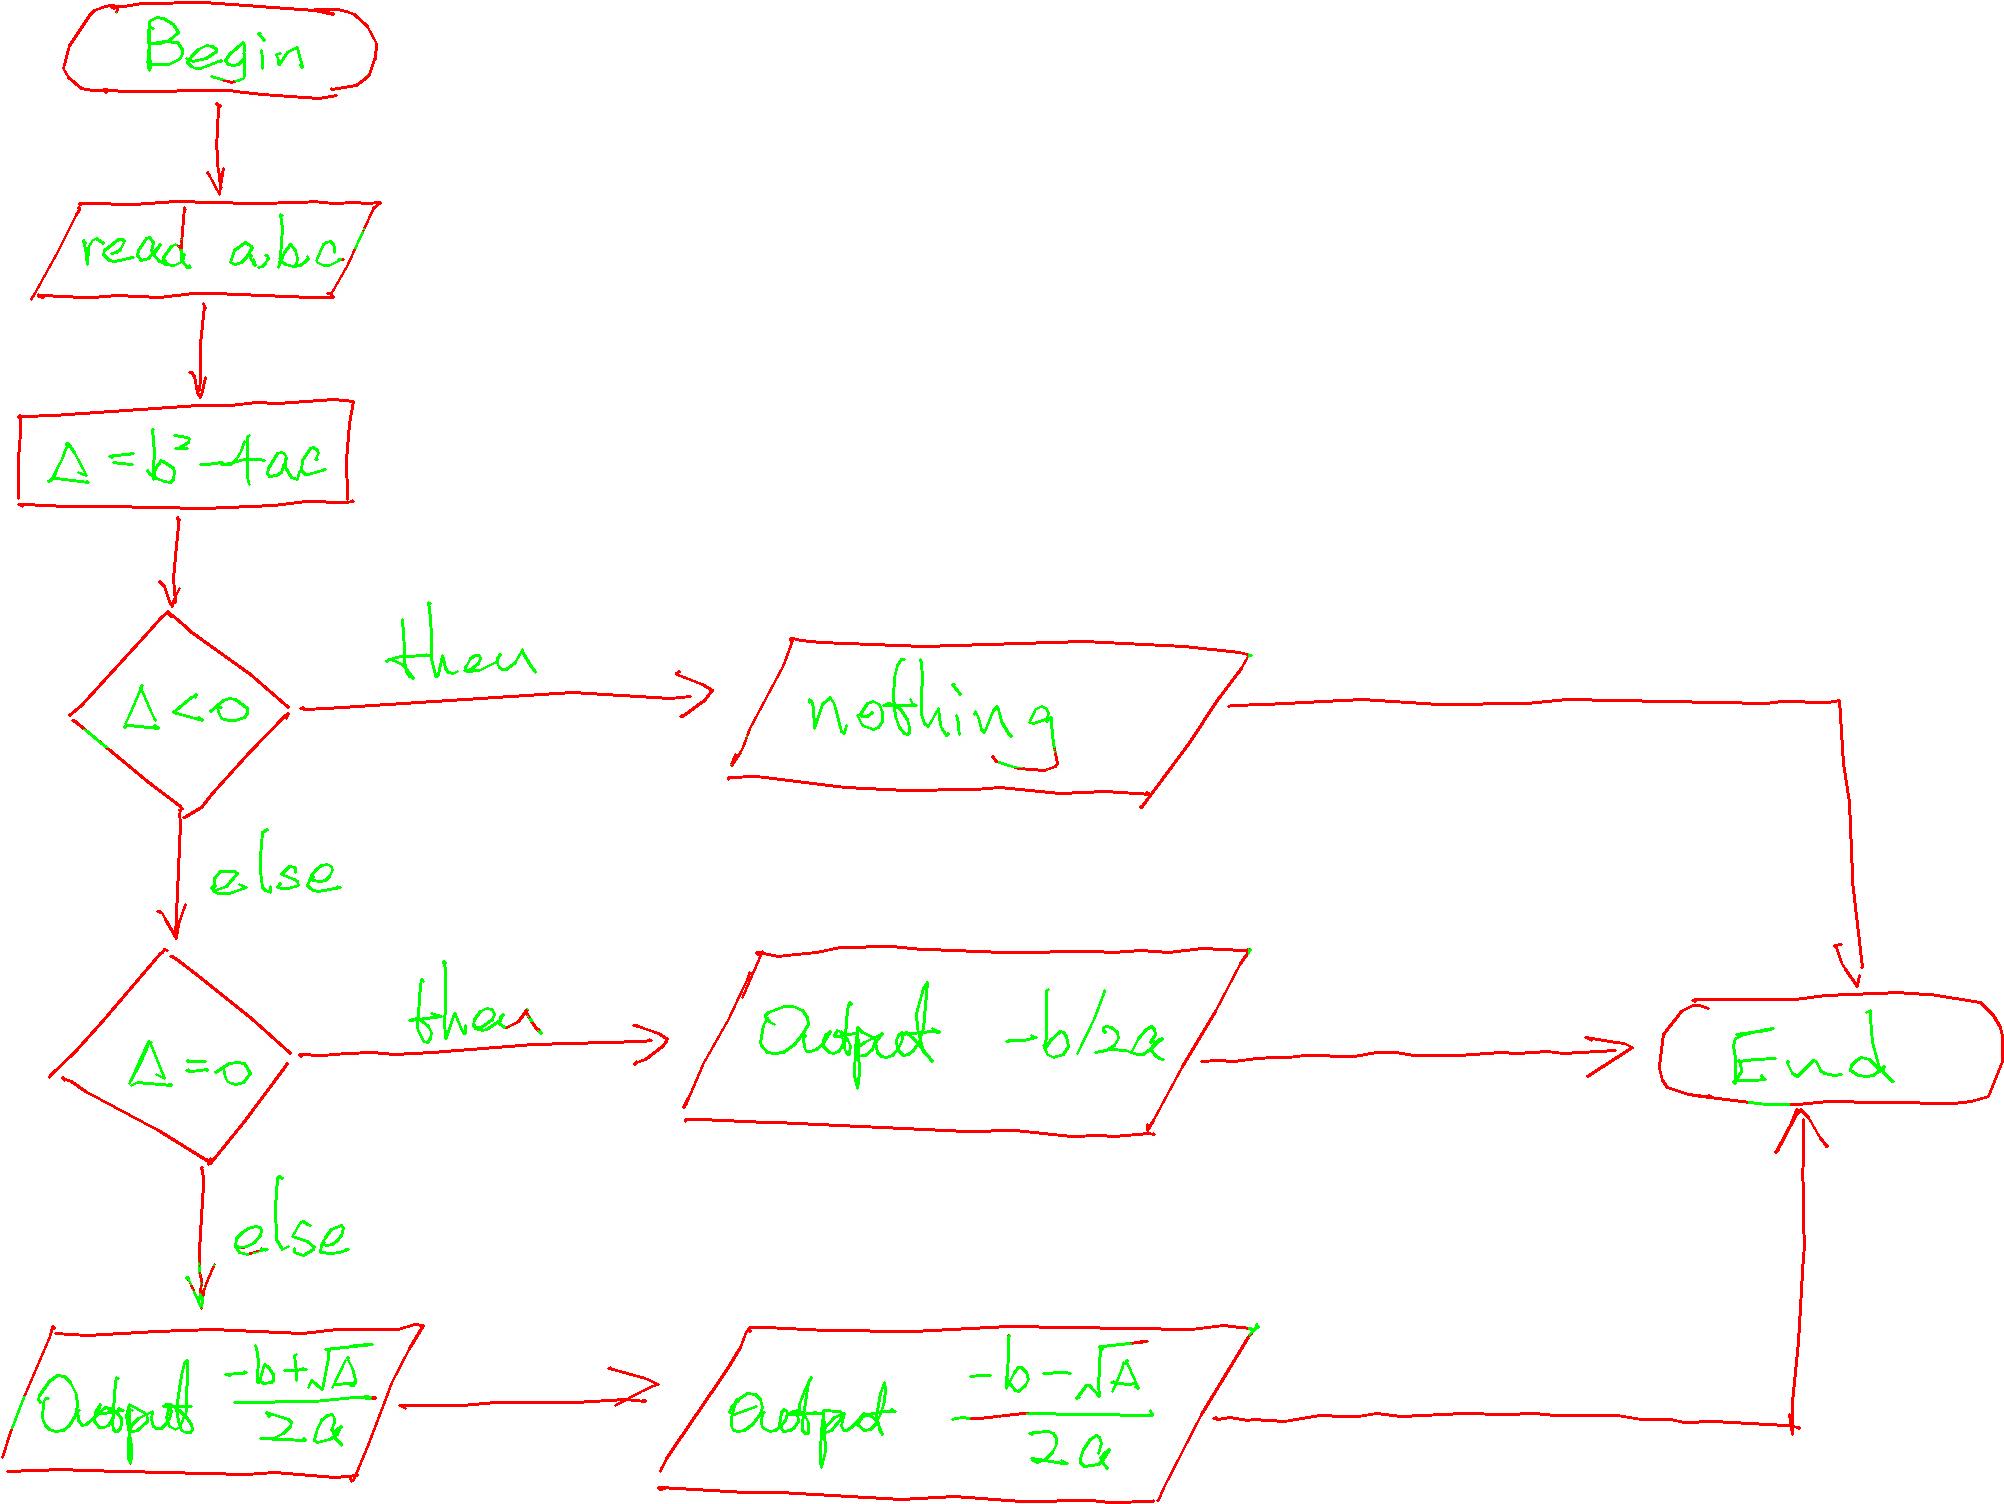 Begin
read a,b,c
Δ=b²-4ac
then
Δ<0
nothing
else
then
Δ=0
Output -b/2a
End
else
Output (-b+√Δ)/2a
Output (-b-√Δ)/2a